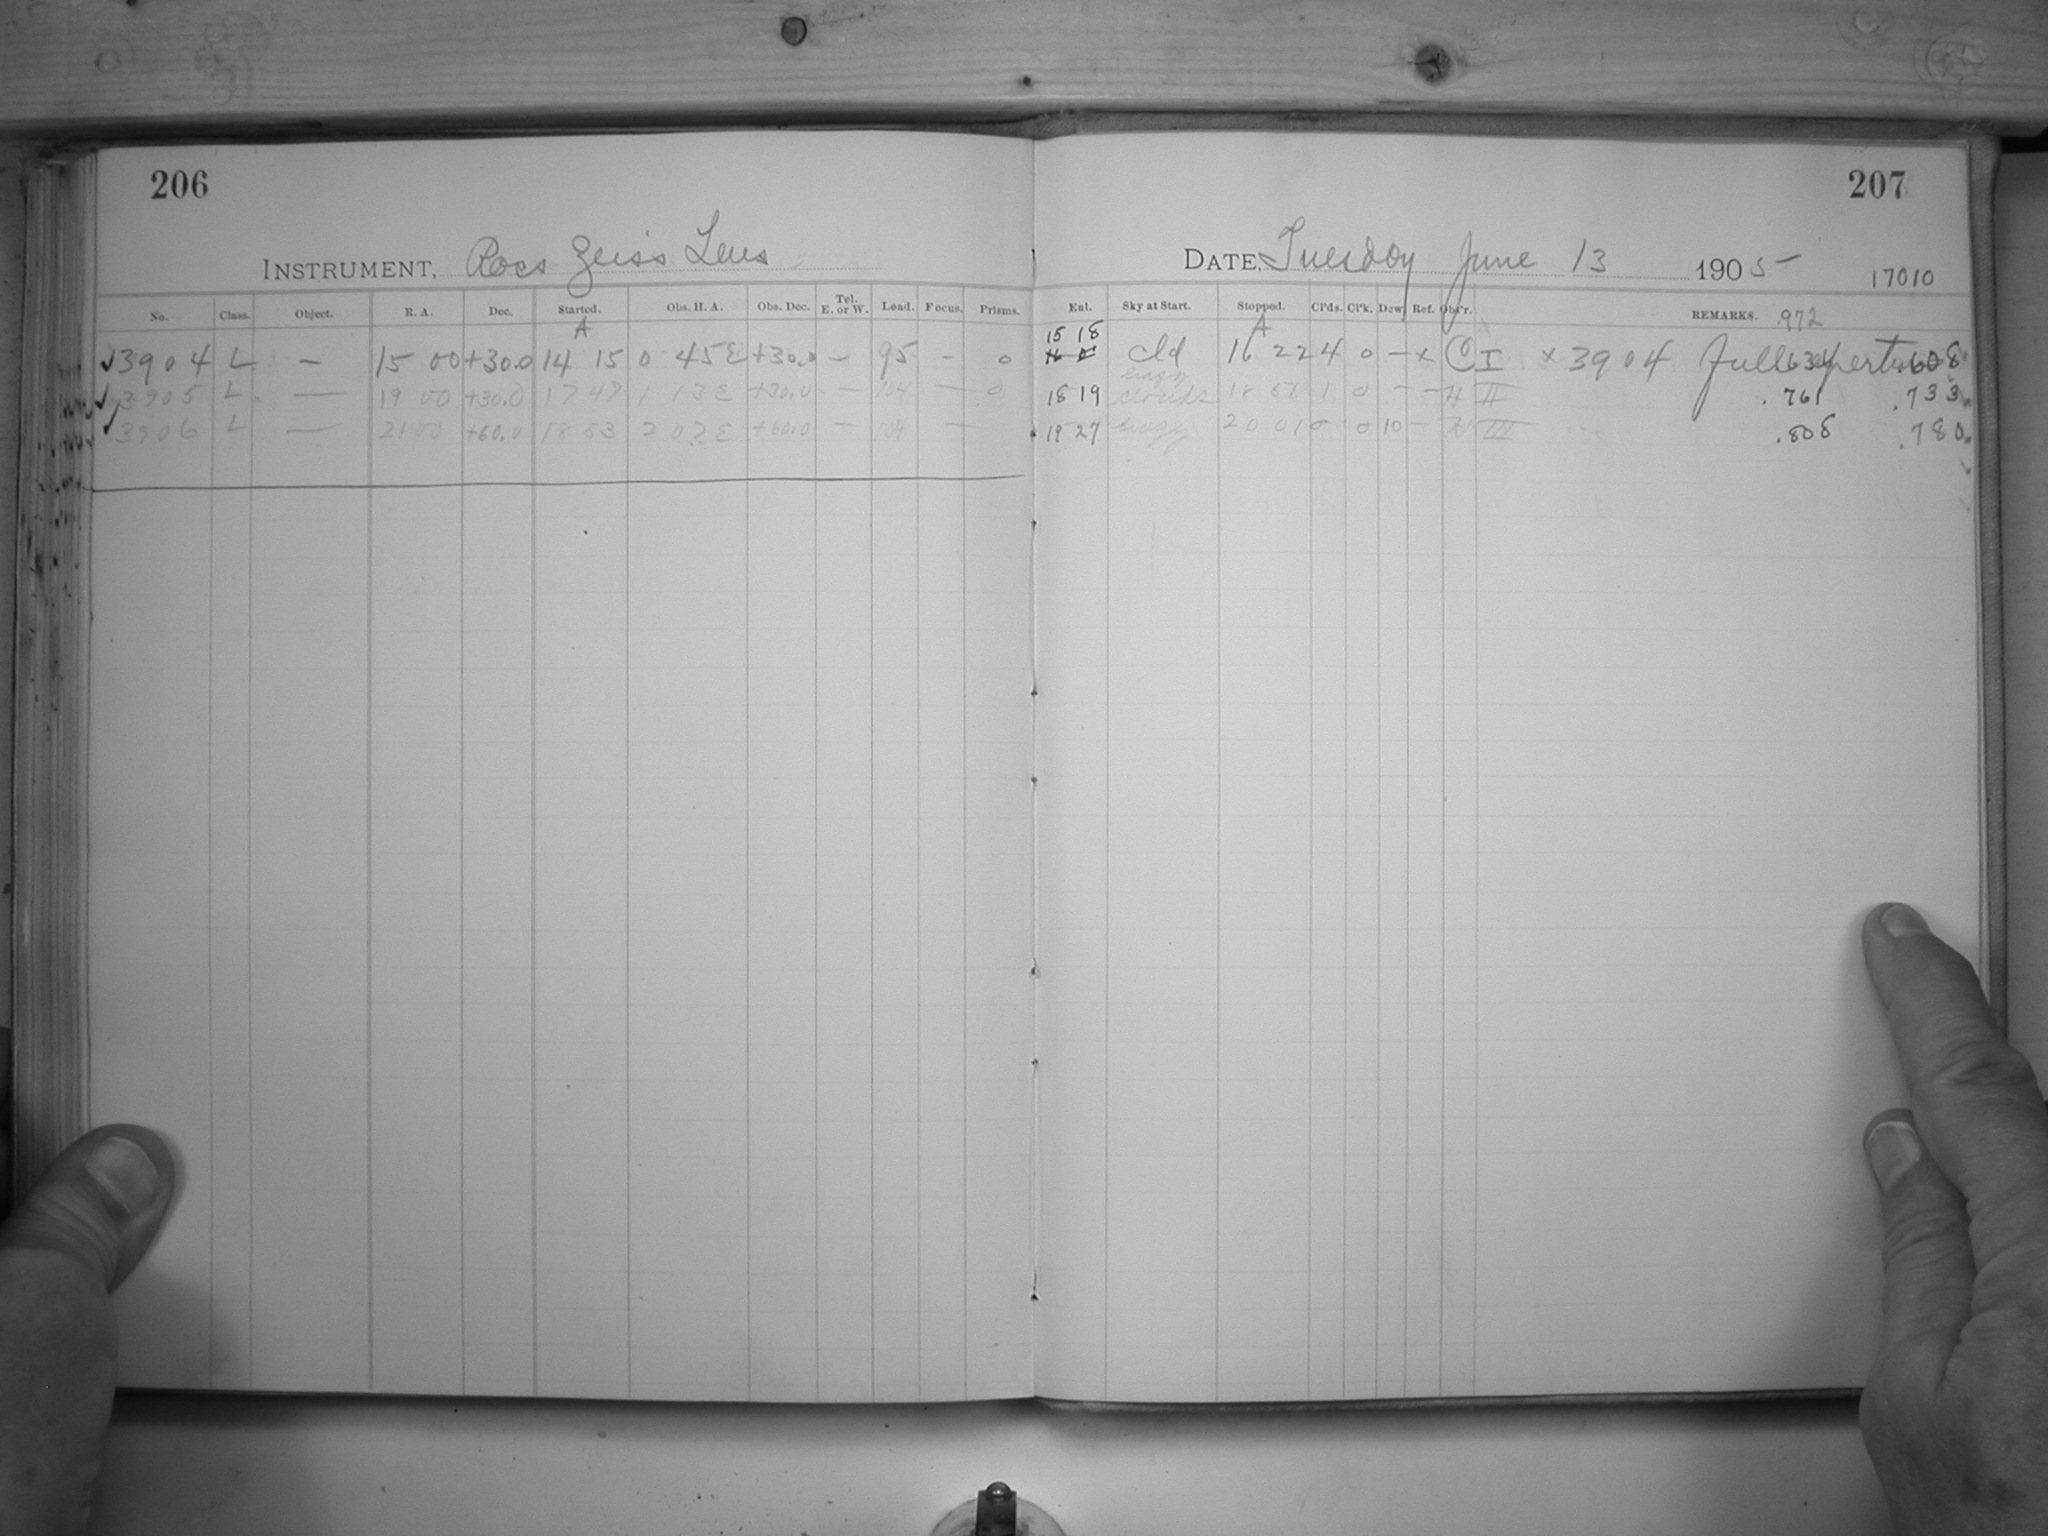 206
207
INSTRUMENT, Ross Zeiss Lens
DATE, Tuesday June 13 1905
17010
No. Class. Object. R. A. Dec. Started. Obs. H. A. Obs. Dec. Tel. E. or W. Load. Focus. Prisms. Enl. Sky at Start. Stopped. Cl'ds. Cl'k. Dew. Ref. Obs'r. REMARKS. .972
A 15 18 A
✓3904 L — 15 00 +30.0 14 15 0 45E +30.0 — 95 — 0 cld 16 22 4 0 — x C I x 3904 Full aperture .634 .608
✓3905 L — 19 00 +30.0 17 47 1 13E +30.0 — 104 — 0 18 19 hazy clouds 18 51 1 0 — — H II .761 .733
✓3906 L — 21 00 +60.0 18 53 2 07E +60.0 — 104 — 19 27 hazy 20 01 0 0 10 — H III .808 .780